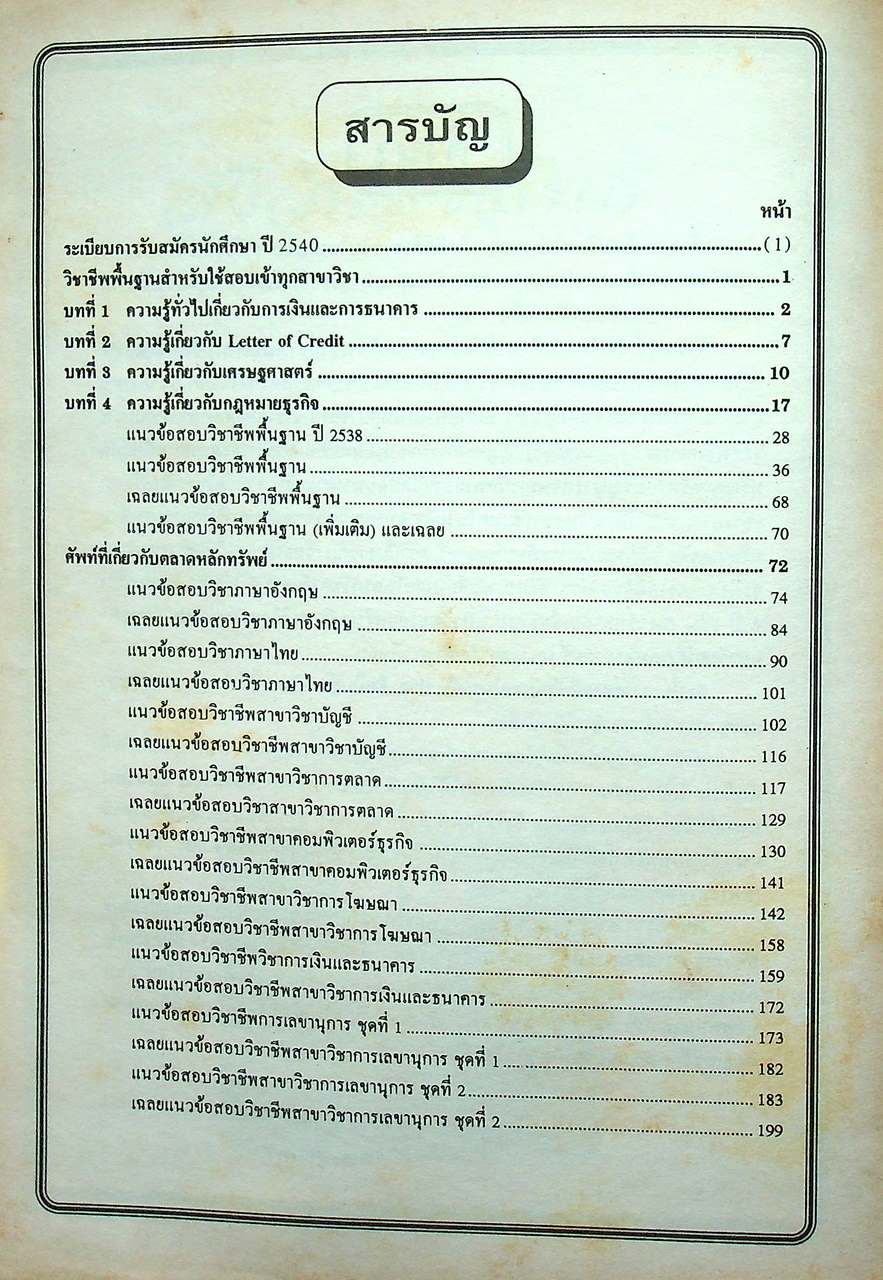 สารบัญ
หน้า
ระเบียบการรับสมัครนักศึกษา ปี 2540 ........ (1)
วิชาชีพพื้นฐานสำหรับใช้สอบเข้าทุกสาขาวิชา ........ 1
บทที่ 1 ความรู้ทั่วไปเกี่ยวกับการเงินและการธนาคาร ........ 2
บทที่ 2 ความรู้เกี่ยวกับ Letter of Credit ........ 7
บทที่ 3 ความรู้เกี่ยวกับเศรษฐศาสตร์ ........ 10
บทที่ 4 ความรู้เกี่ยวกับกฎหมายธุรกิจ ........ 17
แนวข้อสอบวิชาชีพพื้นฐาน ปี 2538 ........ 28
แนวข้อสอบวิชาชีพพื้นฐาน ........ 36
เฉลยแนวข้อสอบวิชาชีพพื้นฐาน ........ 68
แนวข้อสอบวิชาชีพพื้นฐาน (เพิ่มเติม) และเฉลย ........ 70
ศัพท์ที่เกี่ยวกับตลาดหลักทรัพย์ ........ 72
แนวข้อสอบวิชาภาษาอังกฤษ ........ 74
เฉลยแนวข้อสอบวิชาภาษาอังกฤษ ........ 84
แนวข้อสอบวิชาภาษาไทย ........ 90
เฉลยแนวข้อสอบวิชาภาษาไทย ........ 101
แนวข้อสอบวิชาชีพสาขาวิชาบัญชี ........ 102
เฉลยแนวข้อสอบวิชาชีพสาขาวิชาบัญชี ........ 116
แนวข้อสอบวิชาชีพสาขาวิชาการตลาด ........ 117
เฉลยแนวข้อสอบวิชาสาขาวิชาการตลาด ........ 129
แนวข้อสอบวิชาชีพสาขาคอมพิวเตอร์ธุรกิจ ........ 130
เฉลยแนวข้อสอบวิชาชีพสาขาคอมพิวเตอร์ธุรกิจ ........ 141
แนวข้อสอบวิชาชีพสาขาวิชาการโฆษณา ........ 142
เฉลยแนวข้อสอบวิชาชีพสาขาวิชาการโฆษณา ........ 158
แนวข้อสอบวิชาชีพวิชาการเงินและธนาคาร ........ 159
เฉลยแนวข้อสอบวิชาชีพสาขาวิชาการเงินและธนาคาร ........ 172
แนวข้อสอบวิชาชีพการเลขานุการ ชุดที่ 1 ........ 173
เฉลยแนวข้อสอบวิชาชีพสาขาวิชาการเลขานุการ ชุดที่ 1 ........ 182
แนวข้อสอบวิชาชีพสาขาวิชาการเลขานุการ ชุดที่ 2 ........ 183
เฉลยแนวข้อสอบวิชาชีพสาขาวิชาการเลขานุการ ชุดที่ 2 ........ 199